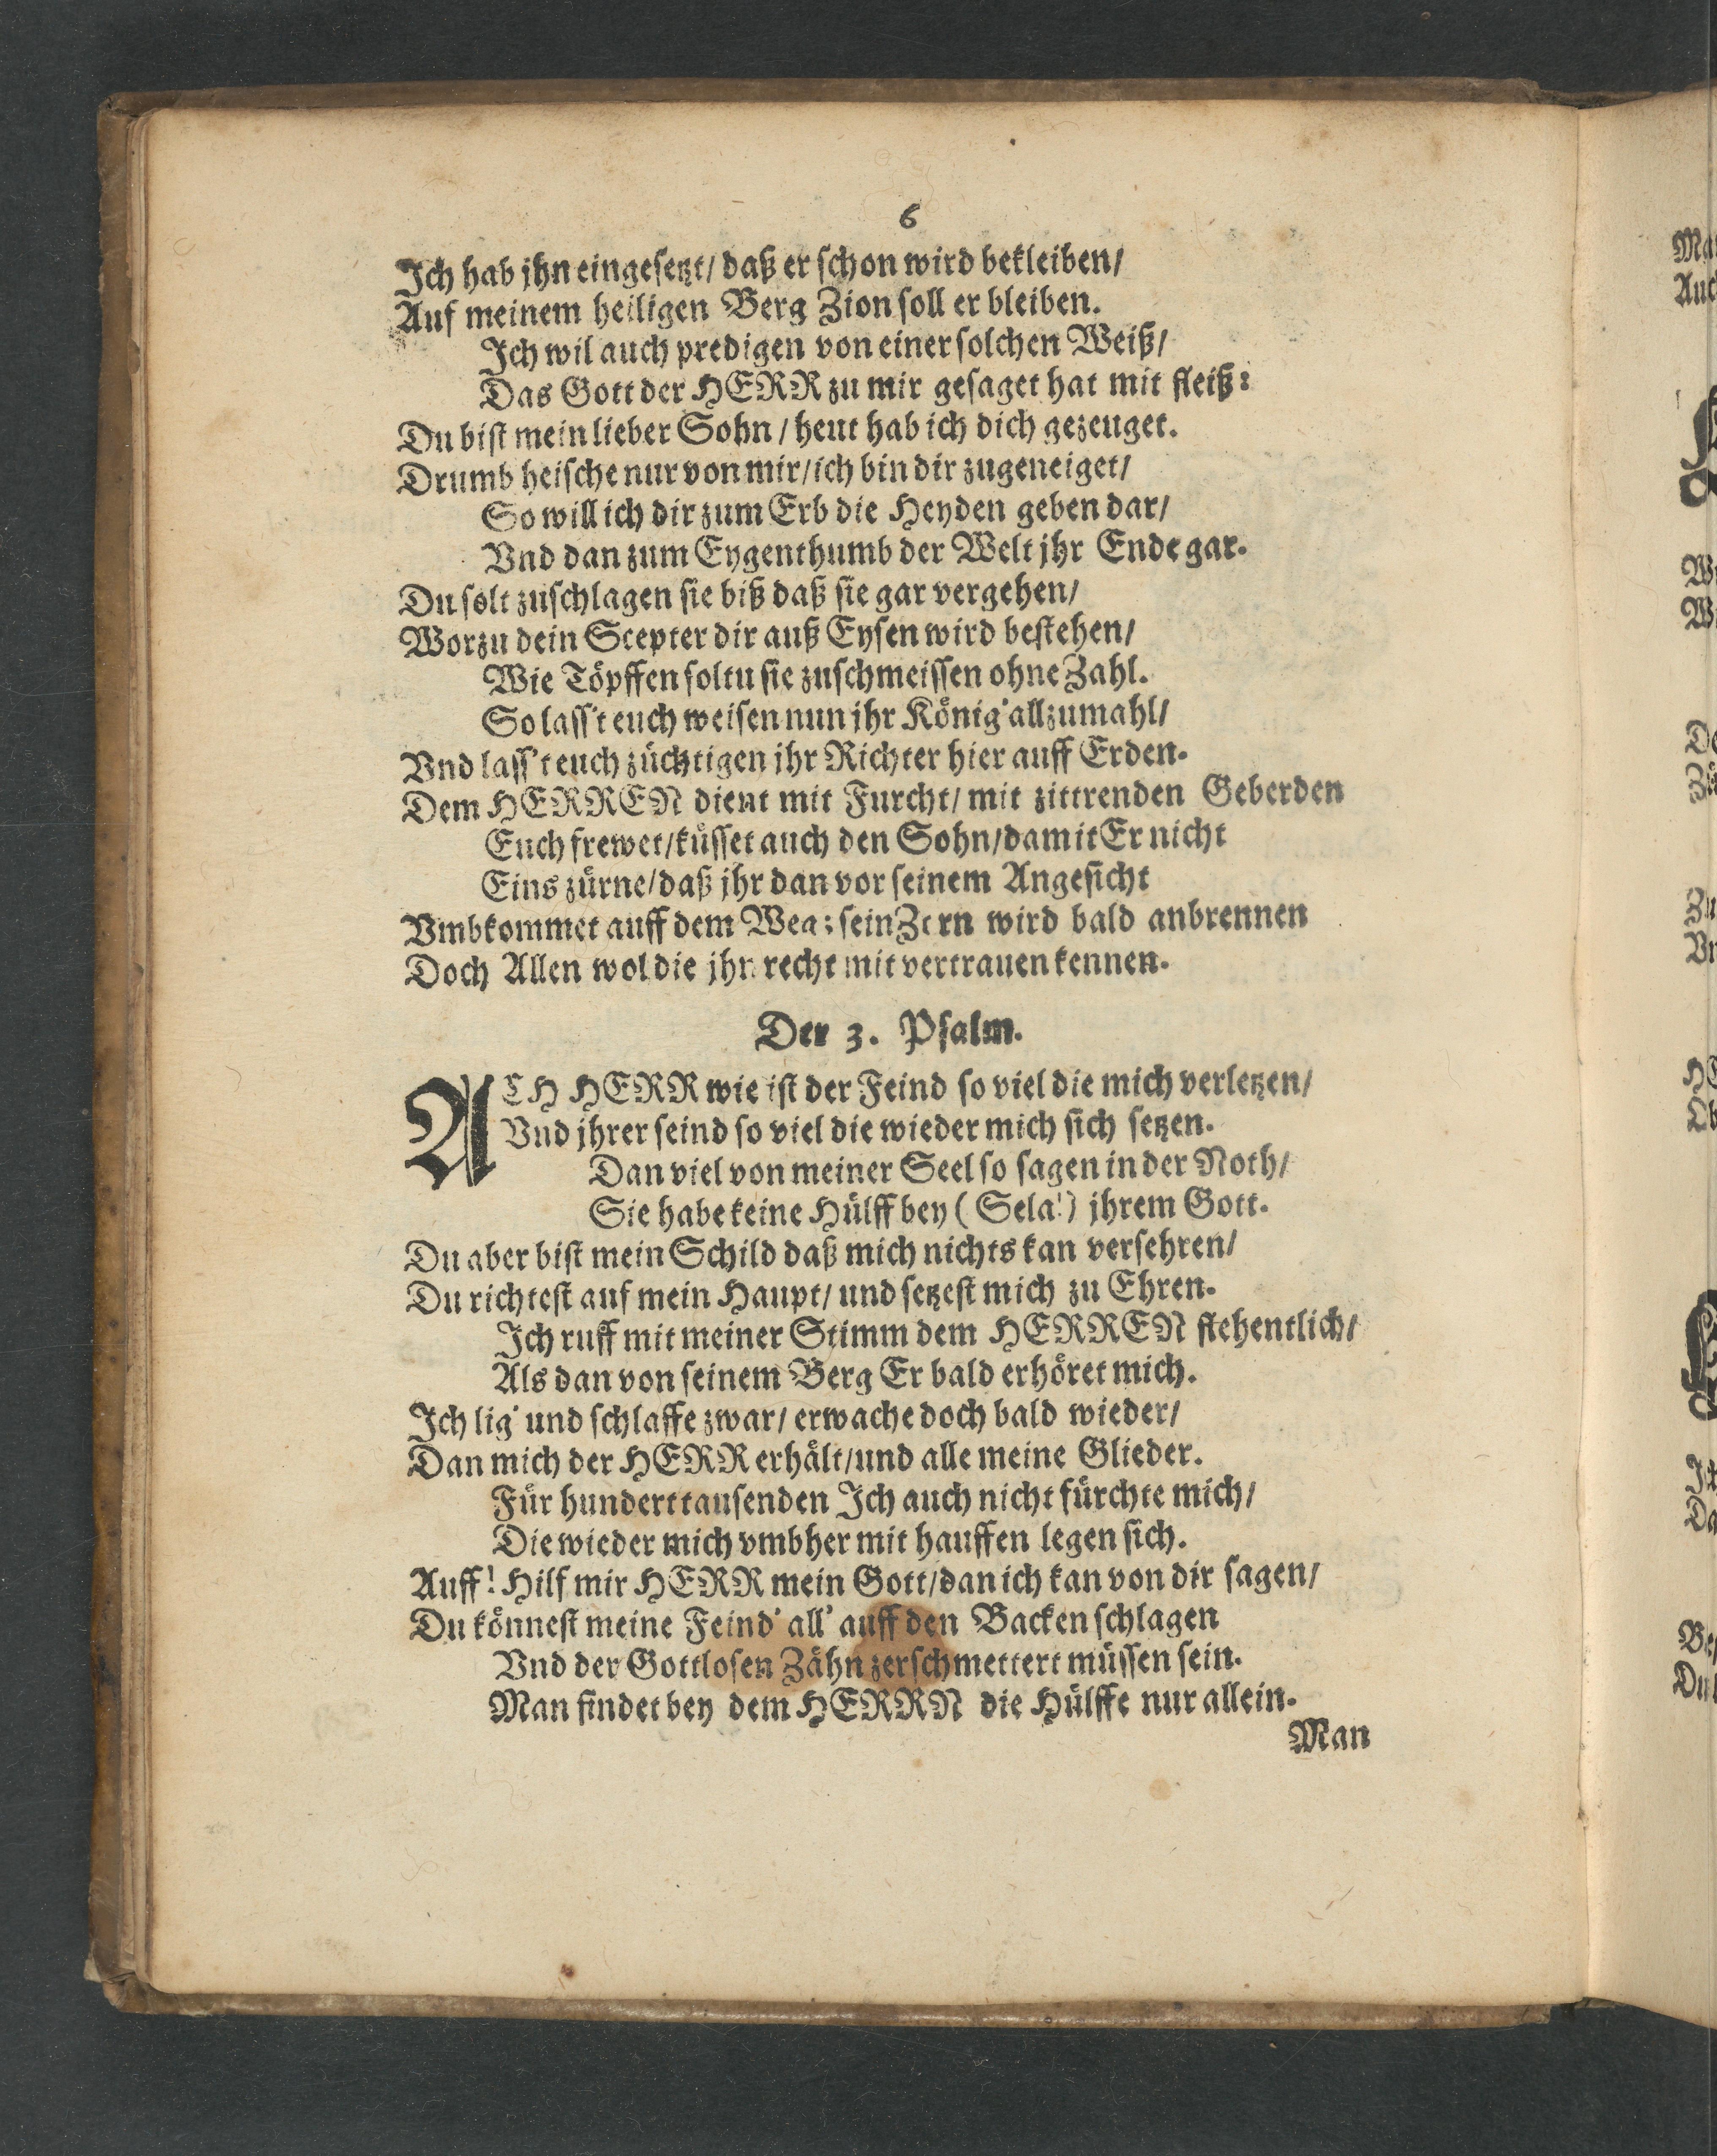 6
Ich hab jhn eingesetzt/ daß er schon wird bekleiben/
Auf meinem heiligen Berg Zion soll er bleiben.
Ich wil auch predigen von einer solchen Weiß/
Das Gott der HERR zu mir gesaget hat mit fleiß:
Du bist mein lieber Sohn / heut hab ich dich gezeuget.
Drumb heische nur von mir/ ich bin dir zugeneiget/
So will ich dir zum Erb die Heyden geben dar/
Vnd dan zum Eygenthumb der Welt jhr Ende gar.
Du solt zuschlagen sie biß daß sie gar vergehen/
Worzu dein Scepter dir auß Eysen wird bestehen/
Wie Töpffen soltu sie zuschmeissen ohne Zahl.
So lass't euch weisen nun jhr König' allzumahl/
Vnd lass't euch züchtigen jhr Richter hier auff Erden.
Dem HERREN dient mit Furcht/ mit zittrenden Geberden
Euch frewet/ küsset auch den Sohn/ damit Er nicht
Eins zürne/ daß jhr dan vor seinem Angesicht
Vmbkommet auff dem Weg: sein Zorn wird bald anbrennen
Doch Allen wol die jhn recht mit vertrauen kennen.
Der 3. Psalm.
ACH HERR wie ist der Feind so viel die mich verletzen/
Vnd jhrer seind so viel die wieder mich sich setzen.
Dan viel von meiner Seel so sagen in der Noth/
Sie habe keine Hülff bey (Sela!) jhrem Gott.
Du aber bist mein Schild daß mich nichts kan versehren/
Du richtest auf mein Haupt/ und setzest mich zu Ehren.
Ich ruff mit meiner Stimm dem HERREN flehentlich/
Als dan von seinem Berg Er bald erhöret mich.
Ich lig' und schlaffe zwar/ erwache doch bald wieder/
Dan mich der HERR erhält/ und alle meine Glieder.
Für hunderttausenden Ich auch nicht fürchte mich/
Die wieder mich vmbher mit hauffen legen sich.
Auff! Hilf mir HERR mein Gott/ dan ich kan von dir sagen/
Du könnest meine Feind' all' auff den Backen schlagen
Vnd der Gottlosen Zähn zerschmettert müssen sein.
Man findet bey dem HERRN die Hülffe nur allein.
Man